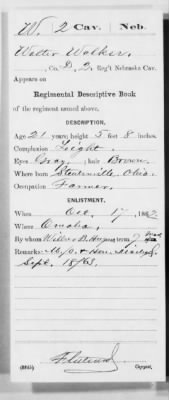 W. 2 Cav. Neb.
Walter Walker,
Co. D, 2 Reg't Nebraska Cav.
Appears on
Regimental Descriptive Book
of the regiment named above.
DESCRIPTION.
Age 21 years; height 5 feet 8 inches.
Complexion Light.
Eyes Gray; hair Brown.
Where born Steubenville, Ohio.
Occupation Farmer.
ENLISTMENT.
When Oct. 17, 186
Where Omaha,
By whom B. term 9
Remarks:
Sept. 1863.
Copyist.